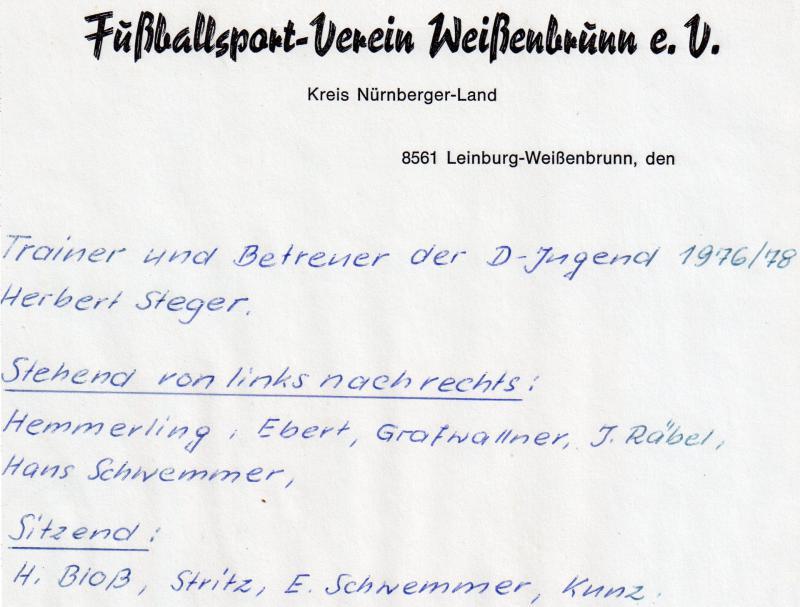 Fußballsport-Verein Weißenbrunn e. V.
Kreis Nürnberger-Land
8561 Leinburg-Weißenbrunn, den
Trainer und Betreuer der D-Jugend 1976/78
Herbert Steger.
Stehend von links nach rechts:
Hemmerling, Ebert, Grafwallner, J. Räbel,
Hans Schwemmer,
Sitzend:
H. Bloß, Stritz, E. Schwemmer, Kunz.